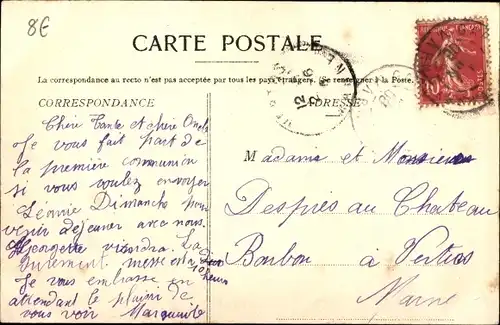 8€
CARTE POSTALE
La correspondance au recto n'est pas acceptée par tous les pays étrangers. Se renseigner à la Poste.
CORRESPONDANCE
ADRESSE
Chère Tante et chère Oncle
Je vous fait part de
la première communion
si vous voulez envoyer
Léonie Dimanche pour
venir déjeuner avec nous.
Georgette viendra. La
messe est à dix
10 heures
Je vous embrasse en
attendant le plaisir de
vous voir Marguerite
Madame et Monsieur
Després au Chateau
Barbon à Vertus
Marne
10